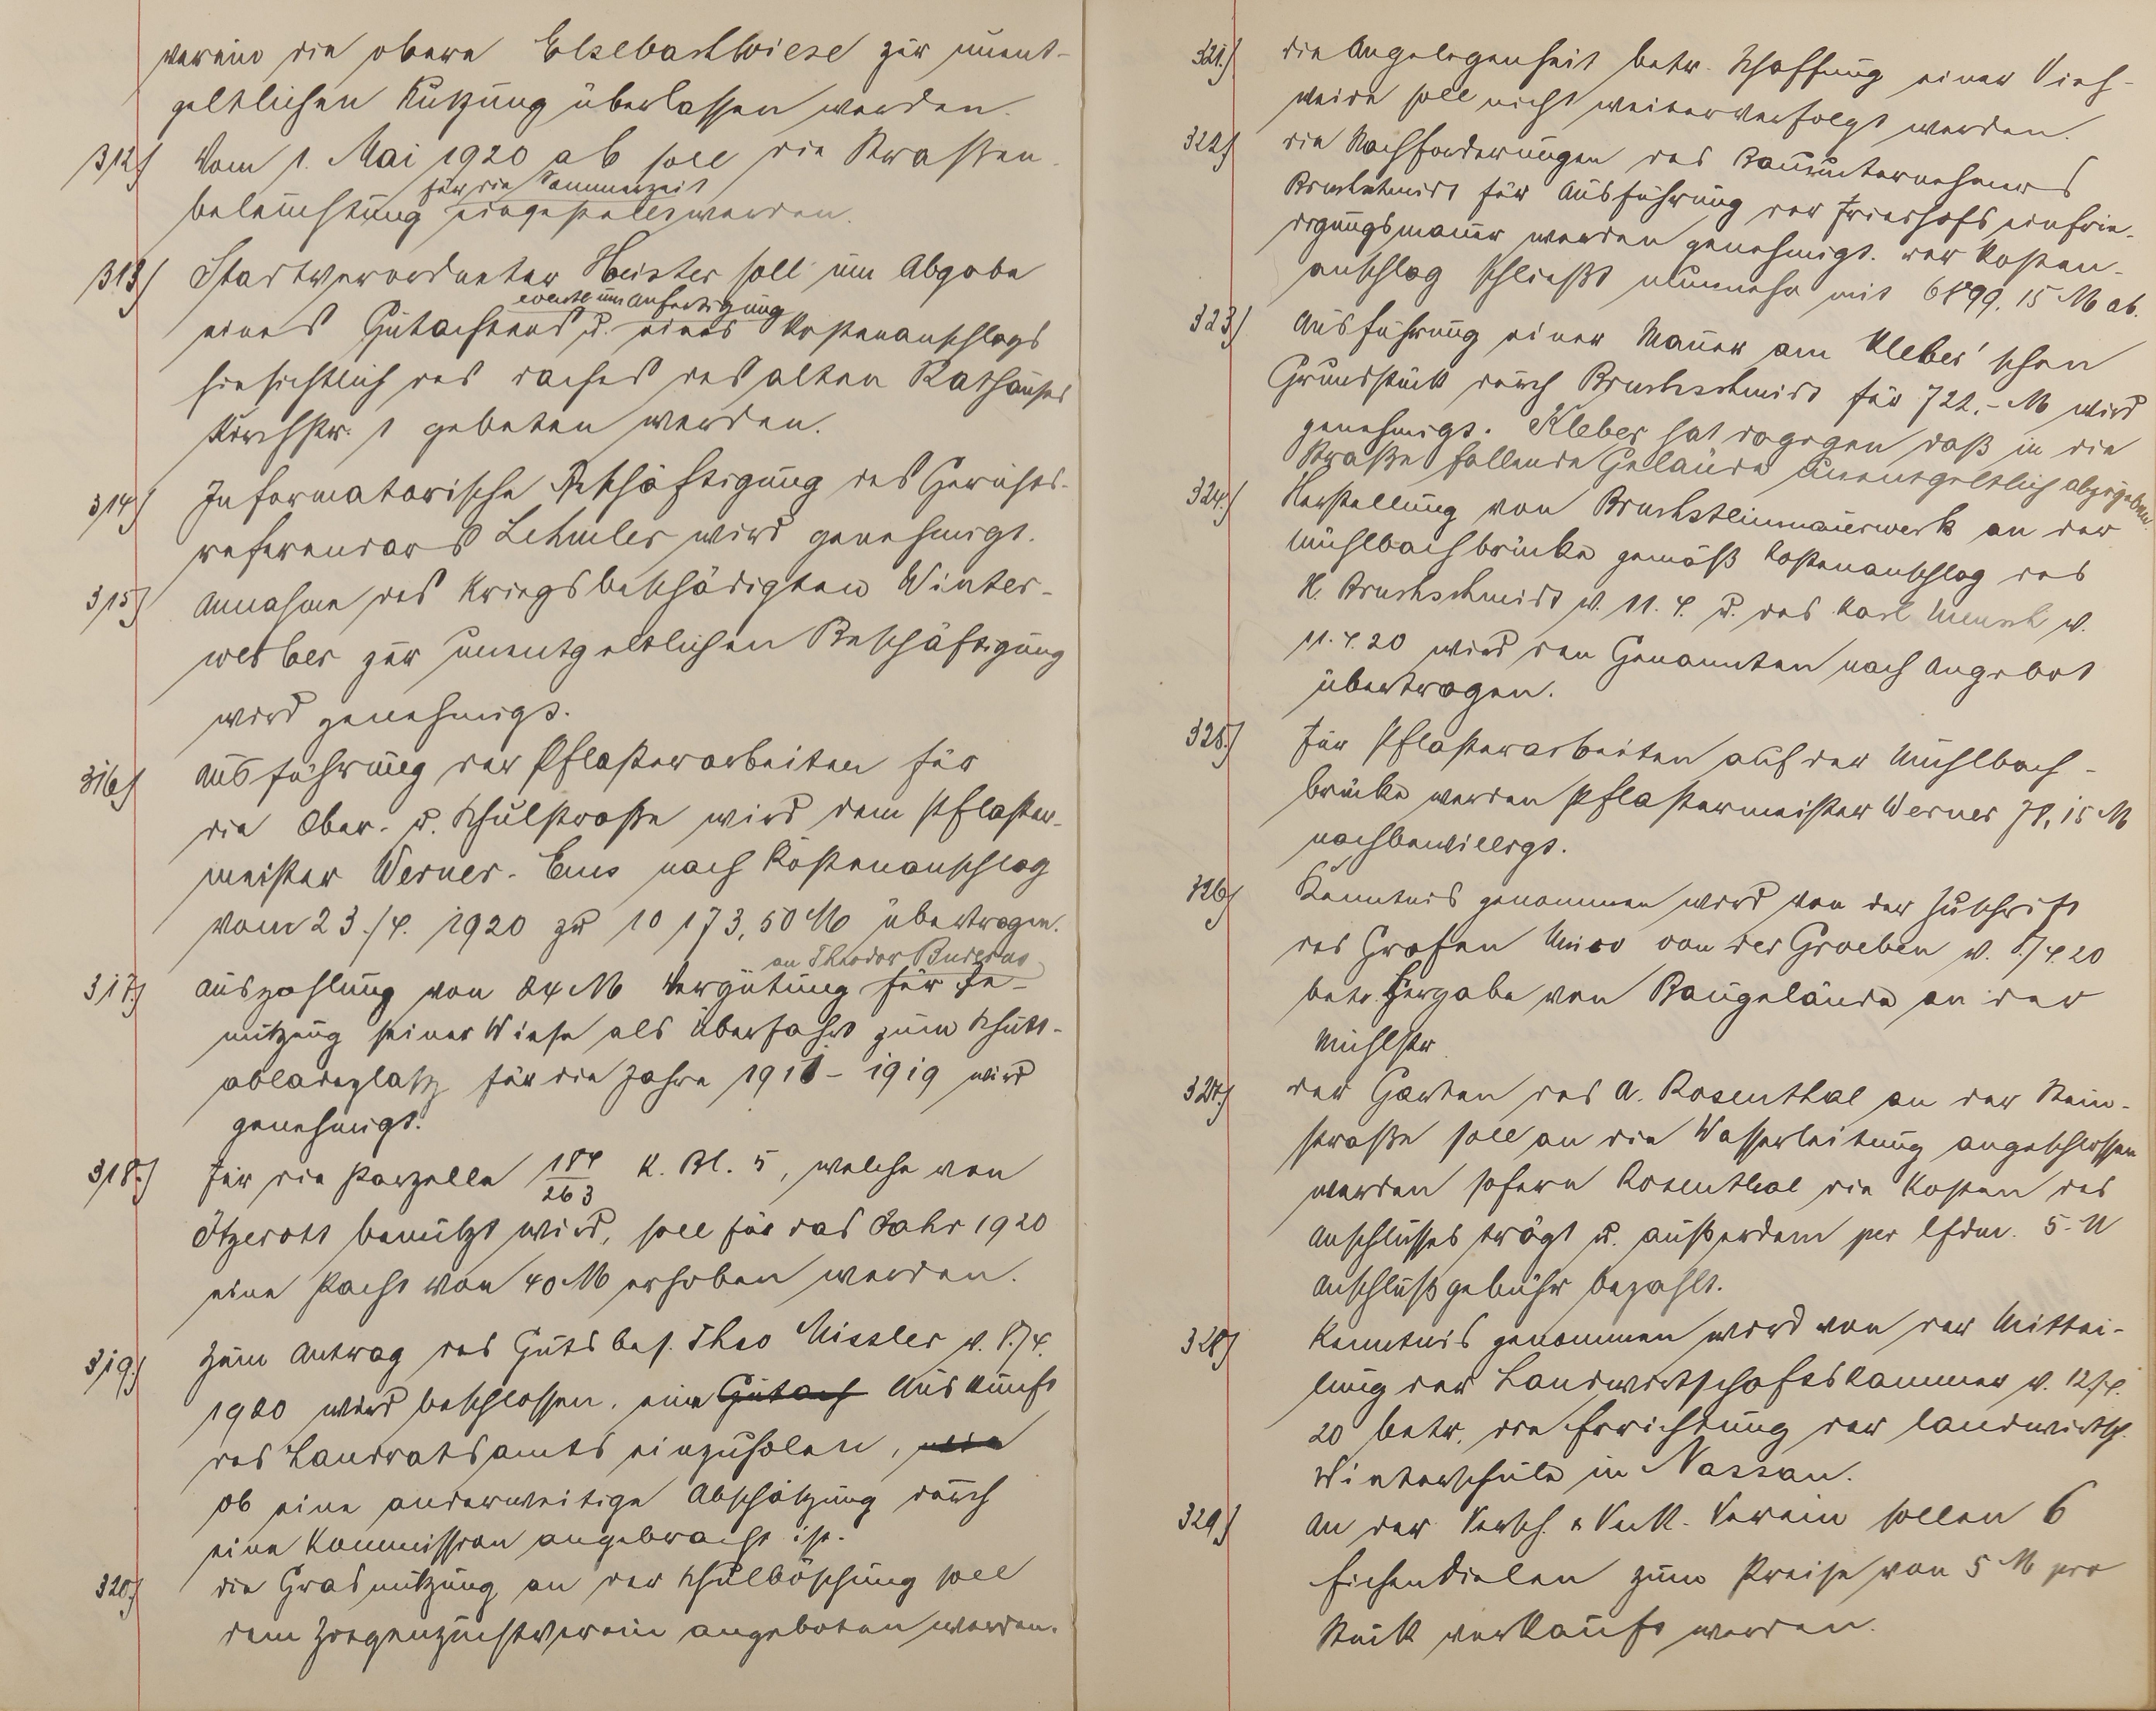 verein die obere Elsebachwiese zur unent-
geltlichen Nutzung überlassen werden.
312) Vom 1. Mai 1920 ab soll die Straßen-
für die Sommerzeit
beleuchtung eingestellt werden.
313) Stadtverordneter Heister soll um Abgabe
eventl. um Anfertigung
eines Gutachtens u. eines Kostenanschlags
hinsichtlich des Daches des alten Rathauses
Kirchstr. 1 gebeten werden.
314) Informatorische Beschäftigung des Gerichts-
referendars wird genehmigt.
315) Annahme des Kriegsbeschädigten Winter-
werber zur unentgeltlichen Beschäftigung
wird genehmigt.
316) Ausführung der Pflasterarbeiten für
die Ober- u. Schulstraße wird dem Pflaster-
meister Werner-Ems nach Kostenanschlag
vom 23./4. 1920 zu 10 173,50 M übertragen.
an Theodor Buderus
317.) Auszahlung von 24 M Vergütung für Be-
nutzung seiner Wiese als Überfahrt zum Schutt-
abladeplatz für die Jahre 1918 - 1919 wird
genehmigt.
318.) Für die Parzelle 184/263 K. Bl. 5, welche von
Ötzerott benutzt wird, soll für das Jahr 1920
eine Pacht von 40 M erhoben werden.
319.) Zum Antrag des Gutsbes. Theo Missler v. 8./4.
1920 wird beschlossen, eine Gutach Auskunft
des Landratsamts einzuholen, wie
ob eine anderweitige Abschätzung durch
eine Kommission angebracht ist.
320.) Die Grasnutzung an der Schulböschung soll
dem Ziegenzuchtverein angeboten werden.
321.) Die Angelegenheit betr. Schaffung einer Vieh-
weide soll nicht weiterverfolgt werden.
322) Die Nachforderungen des Bauunternehmers
Bruchschmidt für Ausführung der Friedhofseinfrie-
digungsmauer werden genehmigt. Der Kosten-
anschlag schließt nunmehr mit 6899.15 M ab.
323) Ausführung einer Mauer am Kleber'schen
Grundstück durch Bruchschmidt für 722.- M wird
genehmigt. Kleber hat dagegen daß in die
Straße fallende Gelände unentgeltlich abzugeben.
324.) Herstellung von Bruchsteinmauerwerk an der
Mühlbachbrücke gemäß Kostenanschlag des
H. Bruchschmidt v. 11. 4. u. des Karl v.
11. 4. 20 wird den Genannten nach Angebot
übertragen.
325.) Für Pflasterarbeiten auf der Mühlbach-
brücke werden Pflastermeister Werner 78,15 M
nachbewilligt.
326) Kenntnis genommen wird von der Zuschrift
des Grafen von der Groeben v. 8./4.20
betr. Hergabe von Baugelände an der
Mühlstr.
327.) Der Garten des A. Rosenthal an der Stein-
straße soll an die Wasserleitung angeschlossen
werden sofern Rosenthal die Kosten des
Anschlusses trägt u. außerdem per lfdm. 5.- M
Anschlußgebühr bezahlt.
328) Kenntnis genommen wird von der Mittei-
lung der Landwirtschaftskammer v. 12./4.
20 betr. die Errichtung der landwirtsch.
Winterschule in Nassau.
329) An der Versch. & Verk.-Verein sollen 6
Eichendielen zum Preise von 5 M pro
Stück verkauft werden.